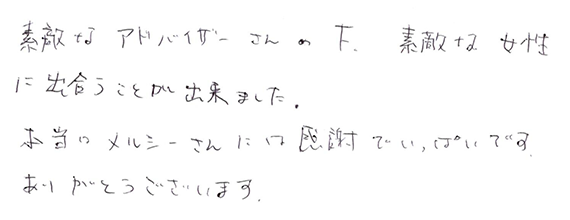 素敵な アドバイザーさんの下、素敵な女性
に出合うことが出来ました。
本当に メルシーさんには感謝でいっぱいです。
ありがとうございます。